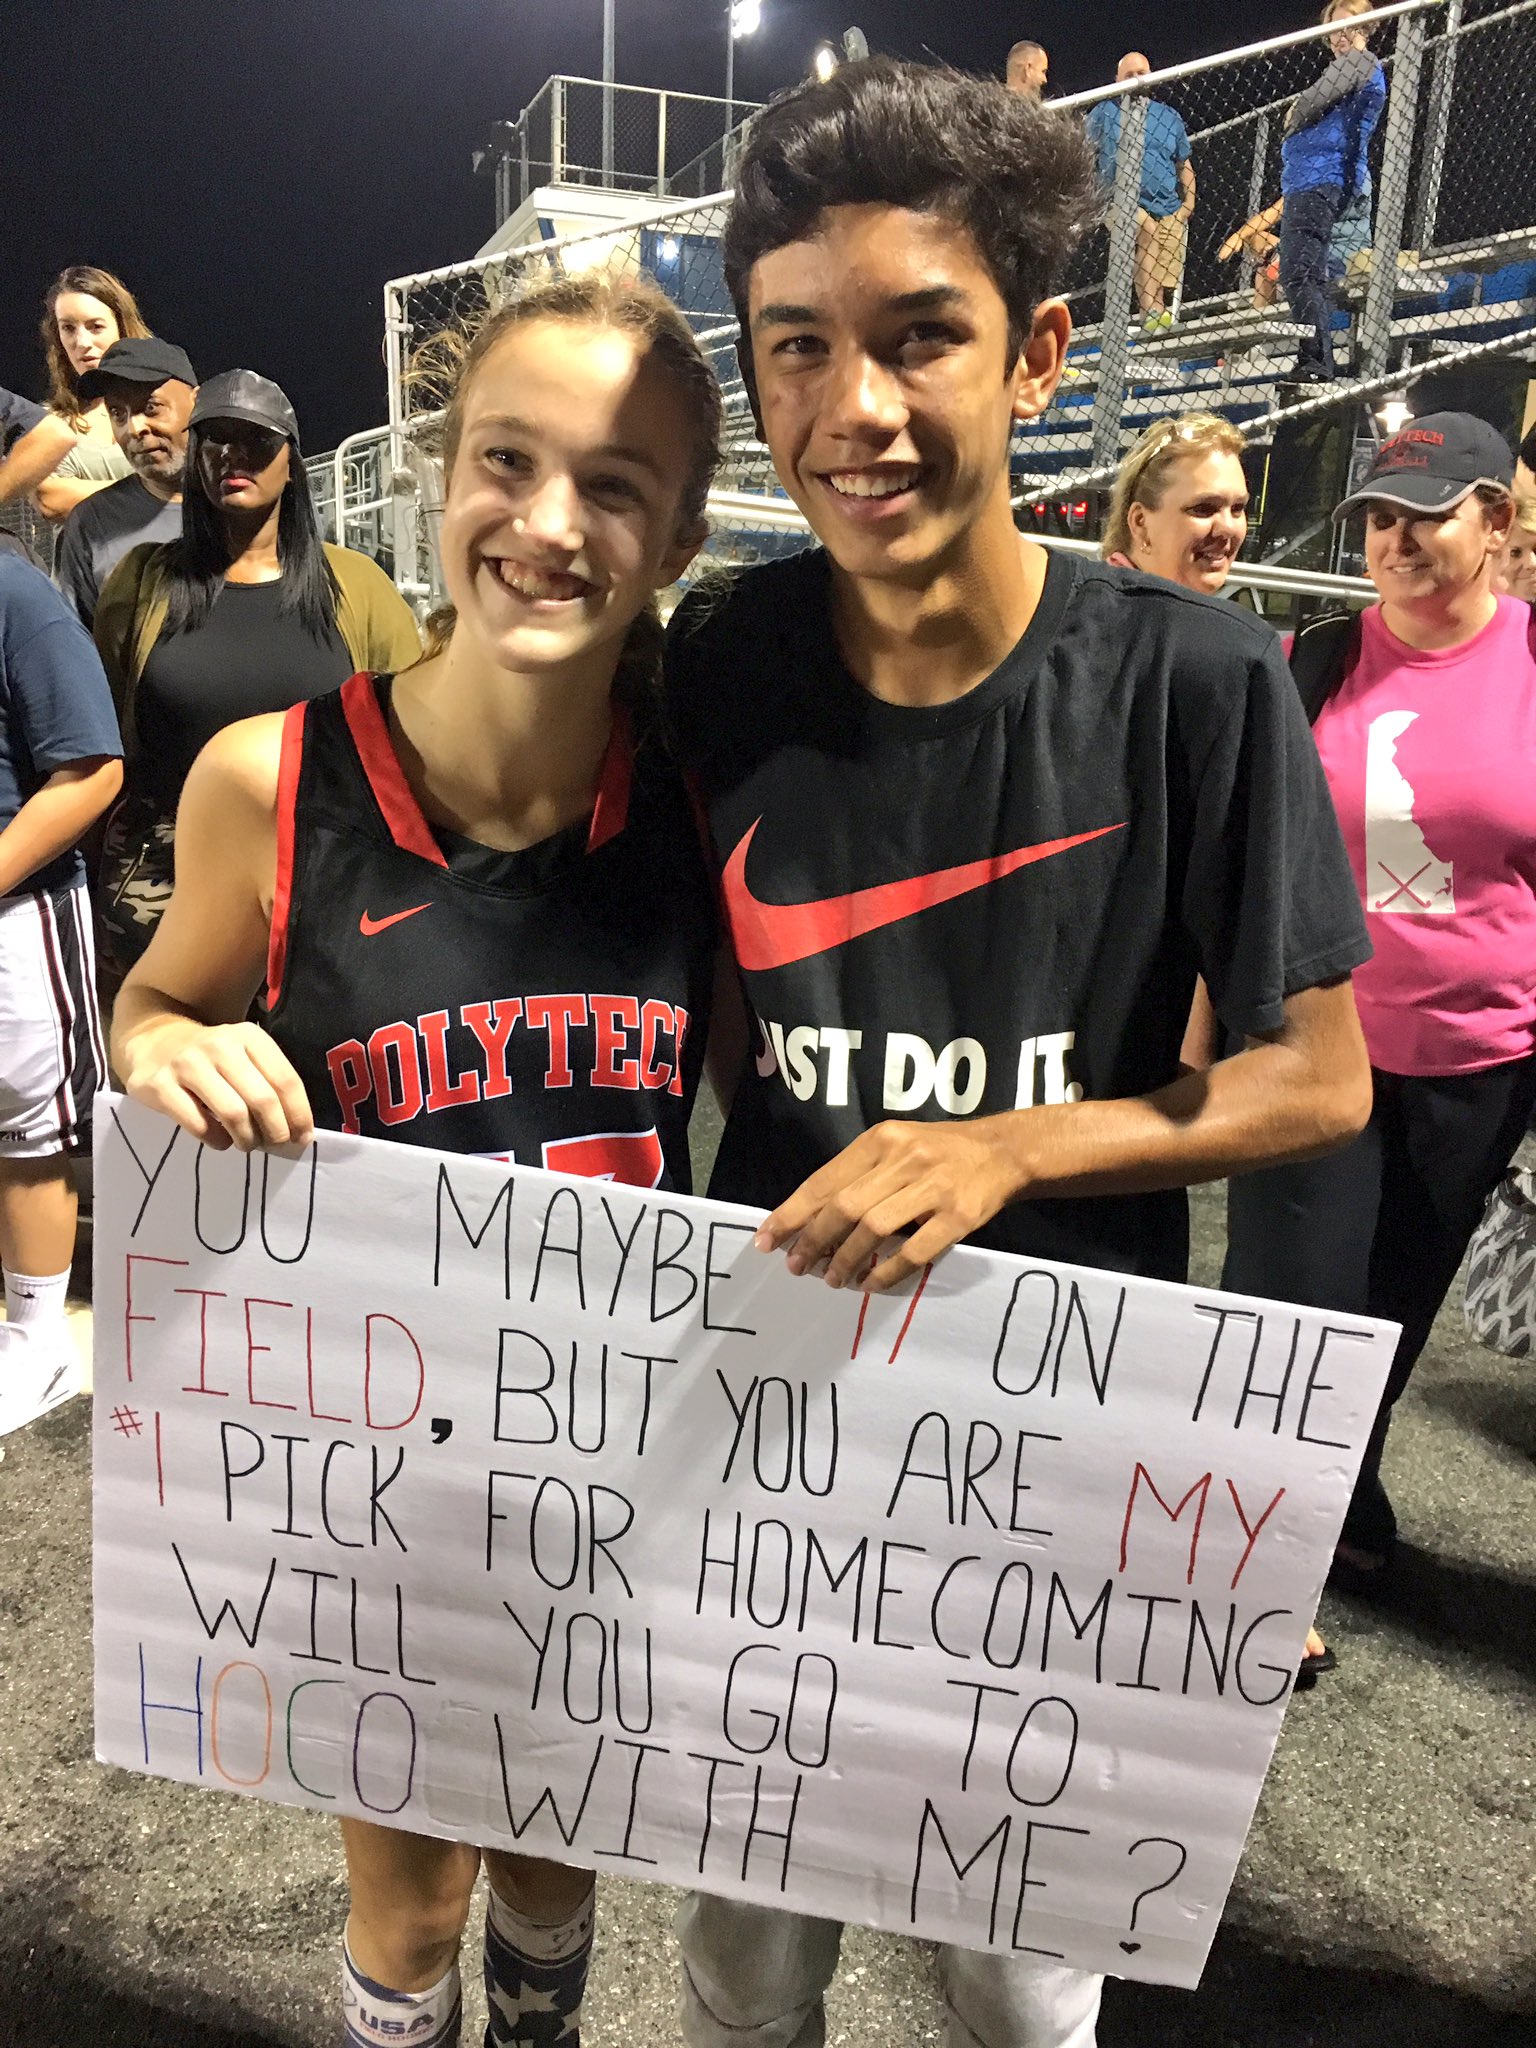 POLYTECH
POLYTECH
JUST DO IT.
YOU MAYBE 17 ON THE
FIELD, BUT YOU ARE MY
#1 PICK FOR HOMECOMING
WILL YOU GO TO
HOCO WITH ME?
USA
FIELD HOCKEY